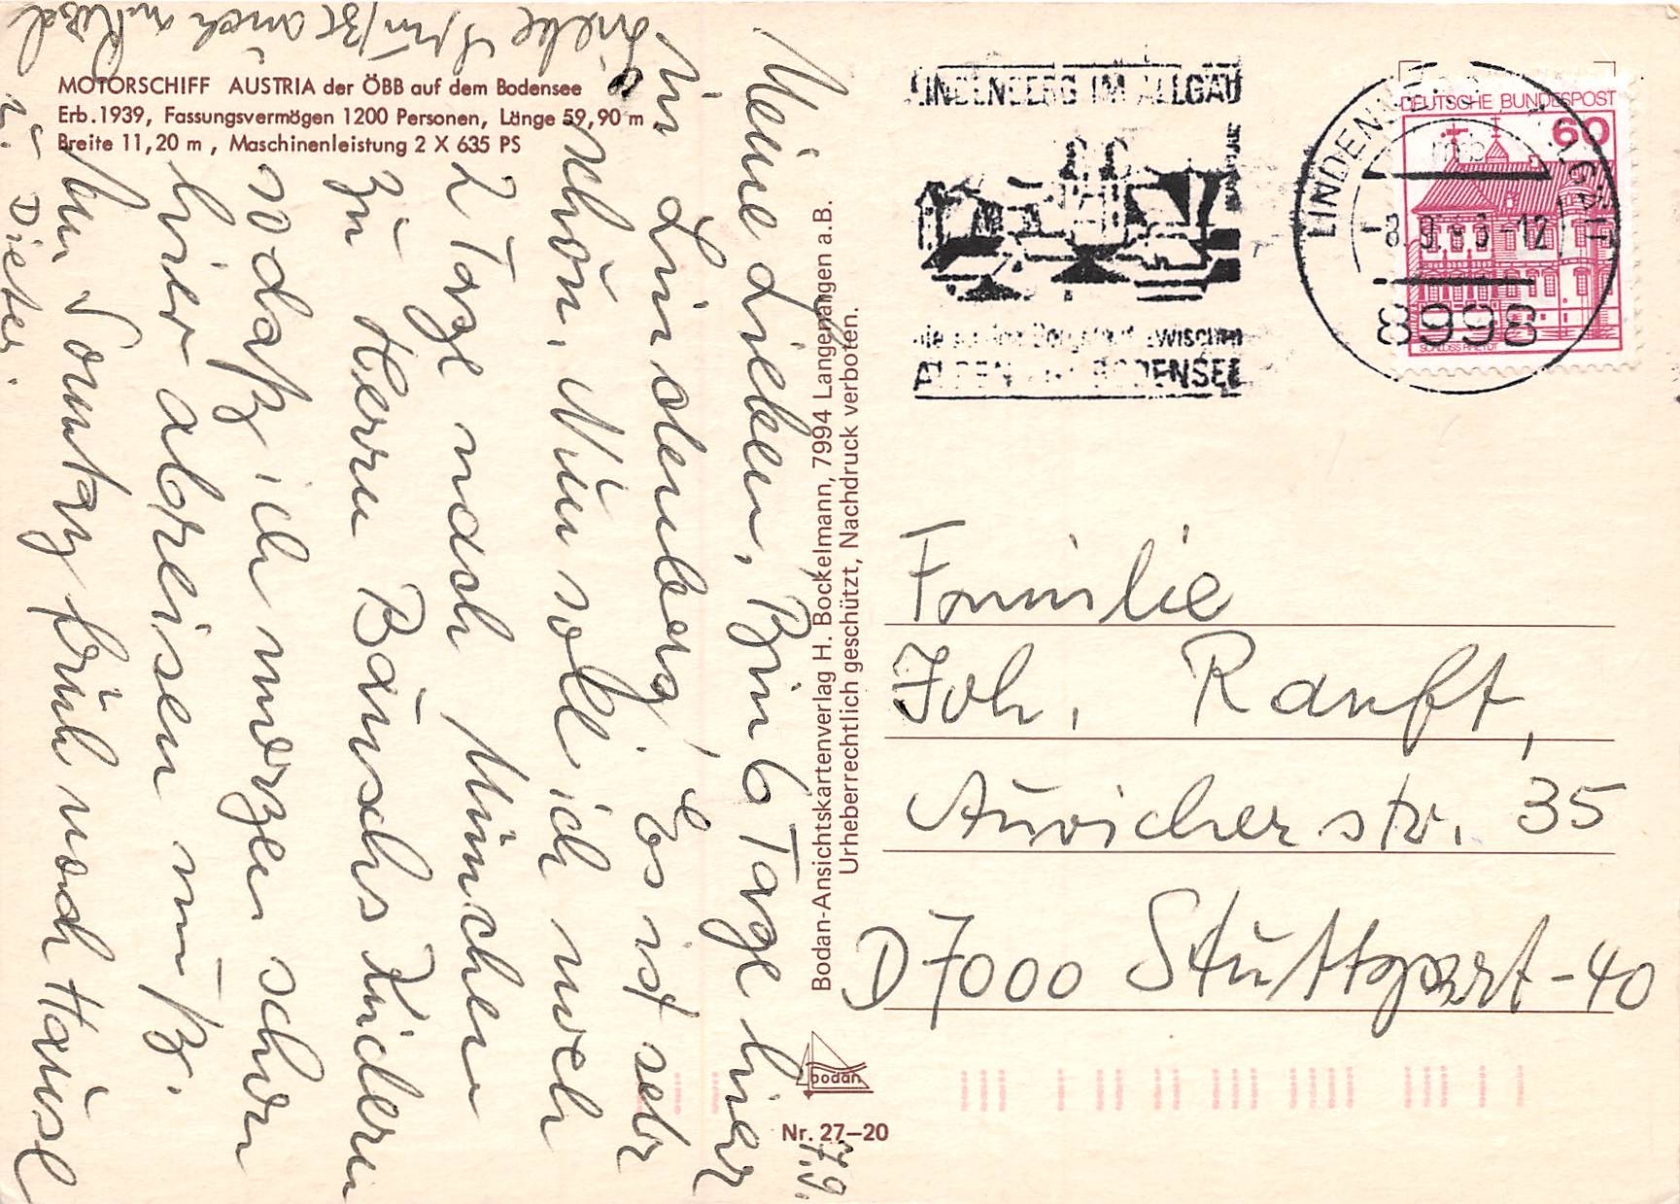 MOTORSCHIFF AUSTRIA der ÖBB auf dem Bodensee
Erb.1939, Fassungsvermögen 1200 Personen, Länge 59,90 m
Breite 11,20 m , Maschinenleistung 2 X 635 PS
7.9.
Meine Lieben, Bin 6 Tage hier
in Lindenberg. Es ist sehr
schön. Nun soll ich noch
2 Tage nach München
zu Herrn Bäuschs Kindern
sodaß ich morgen schon
hier abreisen muß.
Am Sonntag früh nach Hause
Liebe Grüße auch
u. Dieter.
Bodan-Ansichtskartenverlag H. Bockelmann, 7994 Langenargen a.B.
Urheberrechtlich geschützt, Nachdruck verboten.
bodan
Nr. 27–20
LINDENBERG IM ALLGÄU
zwischen
ALPEN UND BODENSEE
LINDENBERG ALLGÄU
-12
8998
DEUTSCHE BUNDESPOST
60
SCHLOSS RHEYDT
Familie
Joh. Ranft,
Auricherstr. 35
D 7000 Stuttgart-40